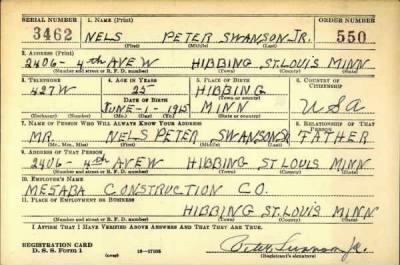 SERIAL NUMBER 1. NAME (Print) ORDER NUMBER
3462 NELS PETER SWANSON JR. 550
(First) (Middle) (Last)
2. ADDRESS (Print)
2406 - 4th AVE W HIBBING ST. LOUIS MINN
(Number and street or R. F. D. number) (Town) (County) (State)
3. TELEPHONE 4. AGE IN YEARS 5. PLACE OF BIRTH 6. COUNTRY OF CITIZENSHIP
427W 25 HIBBING
DATE OF BIRTH (Town or county)
JUNE - 1 - 1915 MINN USA
(Exchange) (Number) (Mo.) (Day) (Yr.) (State or country)
7. NAME OF PERSON WHO WILL ALWAYS KNOW YOUR ADDRESS 8. RELATIONSHIP OF THAT PERSON
MR. NELS PETER SWANSON SR FATHER
(Mr., Mrs., Miss) (First) (Middle) (Last)
9. ADDRESS OF THAT PERSON
2406 - 4th AVE W HIBBING ST. LOUIS MINN
(Number and street or R. F. D. number) (Town) (County) (State)
10. EMPLOYER'S NAME
MESABA CONSTRUCTION CO.
11. PLACE OF EMPLOYMENT OR BUSINESS
HIBBING ST. LOUIS MINN
(Number and street or R. F. D. number) (Town) (County) (State)
I AFFIRM THAT I HAVE VERIFIED ABOVE ANSWERS AND THAT THEY ARE TRUE.
REGISTRATION CARD
D. S. S. Form 1 (over) Swanson Jr.
(Registrant's signature)